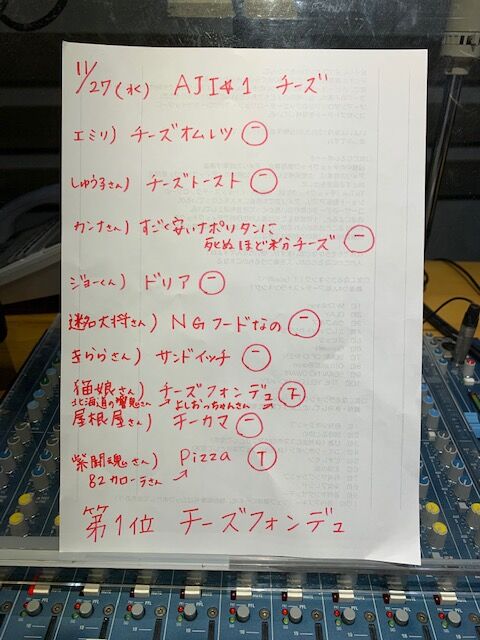 11/27(水) AJI#1 チーズ
エミリ) チーズオムレツ 一
しゅう子さん) チーズトースト 一
カンナさん) すごく安いナポリタンに
死ぬほど粉チーズ 一
ジョーくん) ドリア 一
迷名大将さん) NGフードなの 一
きららさん) サンドイッチ 一
猫娘さん) チーズフォンデュ 下
北海道の響鬼さん よしおっちゃんさん
屋根屋さん) チーカマ 一
紫闘魂さん) Pizza T
82カローラさん
第1位 チーズフォンデュ